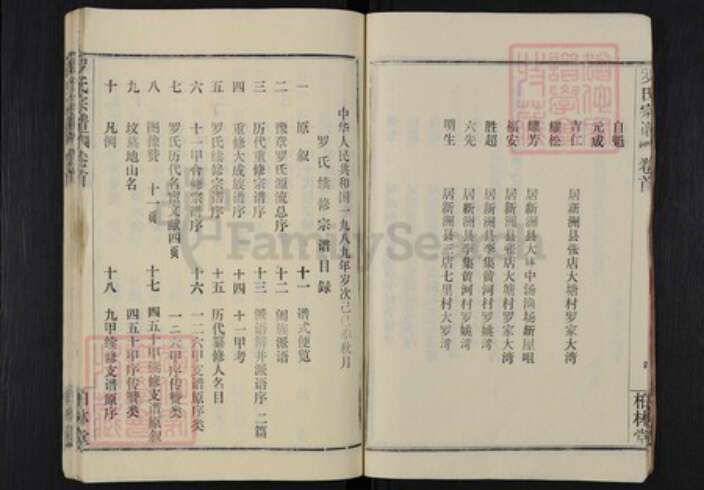 自魁
元成
吉仁 居新洲县张店大塘村罗家大湾
耀松
耀芳 居新洲县大 中汤渔场新屋咀
福安 居新洲县张店大塘村罗家大湾
胜超 居新洲县李集黄河村罗姚湾
六先 居新洲县李集黄河村罗姚湾
明生 居新洲县三店七里村大罗湾
罗氏宗谱 卷首
柏林堂
中华人民共和国一九八九年岁次己巳 秋月
罗氏续修宗谱目录
一 原叙 十一 谱式便览
二 豫章罗氏源流总序 十二 阖族派语
三 历代重修宗谱序 十三 派语解并派语序 二篇
四 重修大成族谱序 十四 十一甲考
五 罗氏续修宗谱序 十五 历代纂修人名目
六 十一甲合修宗谱序 十六 一二六甲支谱原序类
七 罗氏历代名宦文献四页 一二六甲序传赞类
八 图像赞 十一页 十七 四五十甲续修支谱原叙
九 坟墓地山名 四五十甲序传赞类
十 凡例 十八 九甲续修支谱原序
罗氏宗谱 卷首
柏林堂
FamilySearch